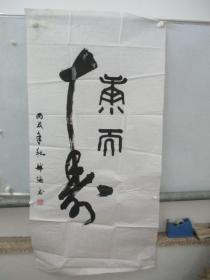 康而
寿
丙戌年秋